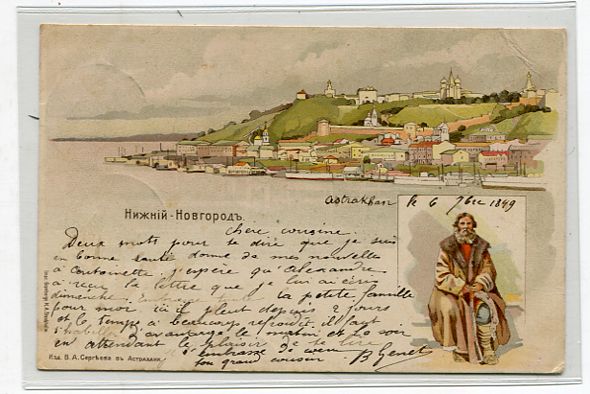 Astrakhan le 6 7bre 1899
Нижній-Новгородъ.
chère cousine.
Deux mots pour te dire que je suis
en bonne santé donne de mes nouvelles
à Antoinette j'espère qu'Alexandre
a reçu la lettre que je lui ai écrit
dimanche. Embrasse la petite famille
pour moi ici il pleut depuis 2 jours
et le temps a beaucoup refroidi il faut
s'habiller d'avantage le matin et le soir
en attendant le plaisir de te lire
t'embrasse de cœur
ton grand cousin B Genet
Изд. В. А. Сергѣева въ Астрахани.